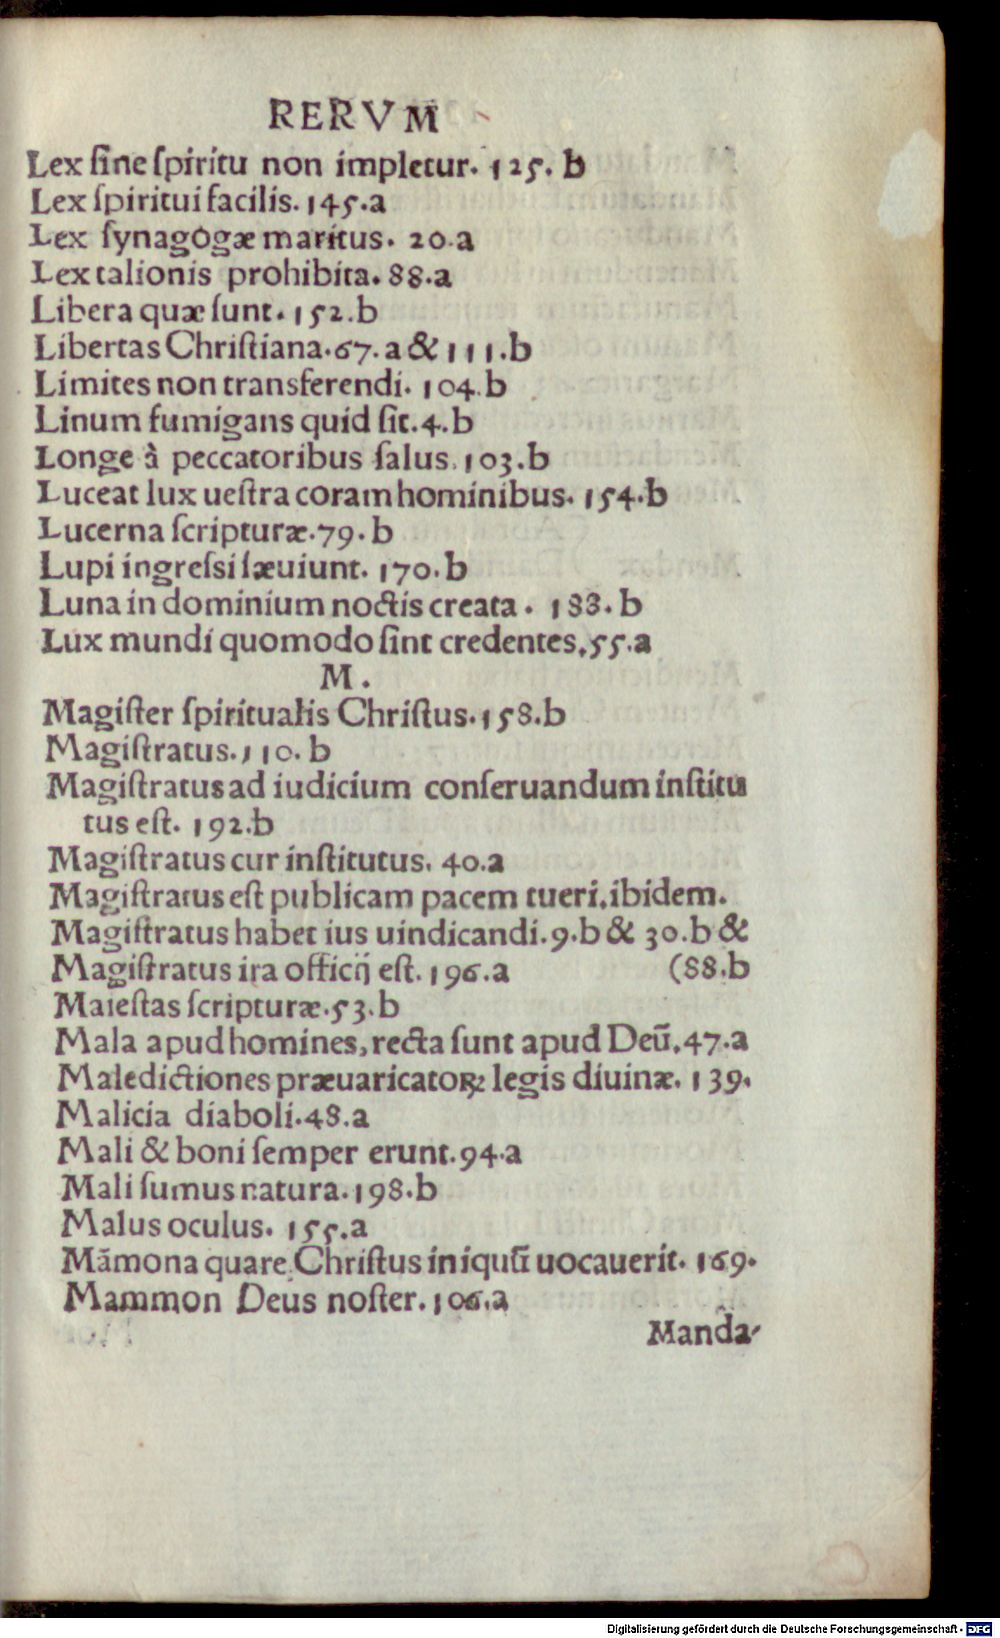 RERVM
Lex ſine ſpiritu non impletur. 125. b
Lex ſpiritui facilis. 145.a
Lex ſynagogæ maritus. 20.a
Lex talionis prohibita. 88.a
Libera quæ ſunt. 152.b
Libertas Chriſtiana. 67. a & 111.b
Limites non transferendi. 104.b
Linum fumigans quid ſit. 4.b
Longe à peccatoribus ſalus. 103.b
Luceat lux ueſtra coram hominibus. 154.b
Lucerna ſcripturæ. 79.b
Lupi ingreſsi ſæuiunt. 170.b
Luna in dominium noctis creata. 183. b
Lux mundi quomodo ſint credentes. 55.a
M.
Magiſter ſpiritualis Chriſtus. 158.b
Magiſtratus. 110. b
Magiſtratus ad iudicium conſeruandum inſtitu
tus eſt. 192.b
Magiſtratus cur inſtitutus. 40.a
Magiſtratus eſt publicam pacem tueri. ibidem.
Magiſtratus habet ius uindicandi. 9.b & 30.b &
Magiſtratus ira officij eſt. 196.a (88.b
Maieſtas ſcripturæ. 53.b
Mala apud homines, recta ſunt apud Deū. 47.a
Maledictiones præuaricatoꝝ legis diuinæ. 139.
Malicia diaboli. 48.a
Mali & boni ſemper erunt. 94.a
Mali ſumus natura. 198.b
Malus oculus. 155.a
Māmona quare Chriſtus iniquū uocauerit. 169.
Mammon Deus noſter. 106.a
Manda-
Digitalisierung gefördert durch die Deutsche Forschungsgemeinschaft - DFG